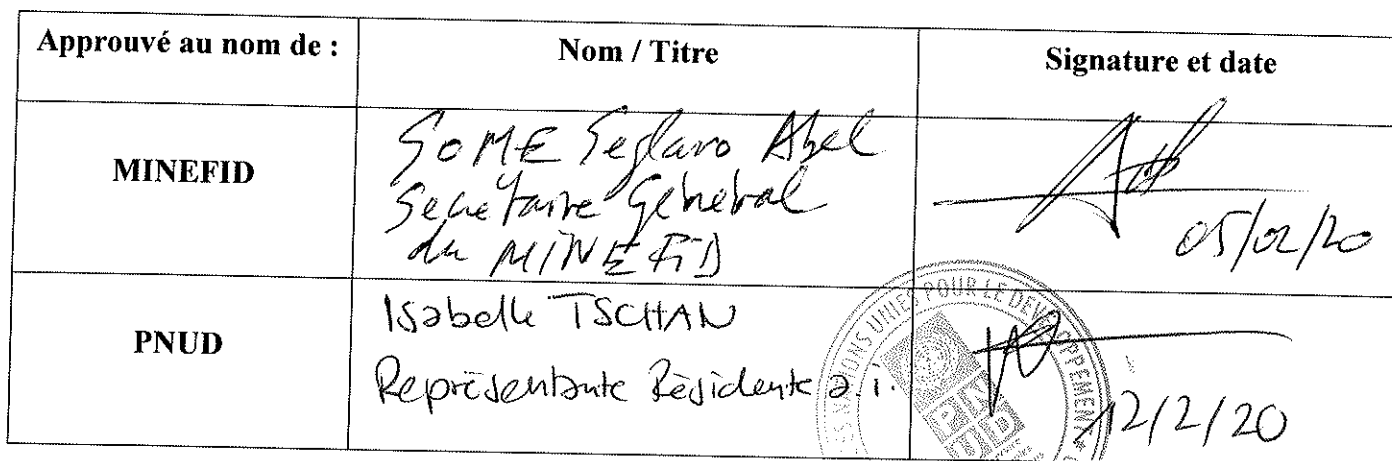 Approuvé au nom de :
Nom / Titre
Signature et date
MINEFID
SOME Seglaro Abel
Secrétaire Général
du MINEFID
05/02/20
PNUD
Isabelle TSCHAN
Représentante Résidente a.i.
12/2/20
NATIONS UNIES POUR LE DEVELOPPEMENT
PNUD